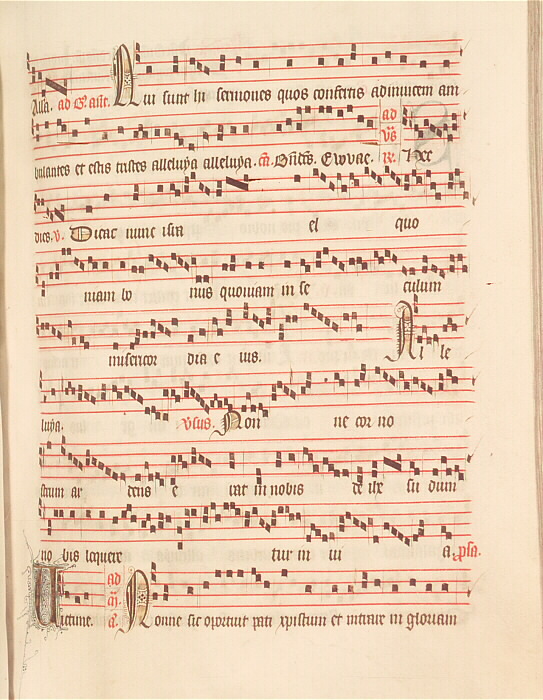 ad Qui sunt hii sermones quos confertis adinuicem am
bulantes et estis tristes alleluya alleluya. Euouae. ad R. Hec
dies. v. Dicat nunc isra el quo
niam bo nus quoniam in se culum
misericor dia e ius. Al le
luya. Vsus. Non ne cor no
strum ar dens e rat in nobis de ihu su dum
no bis loquere tur in ui a. psa.
Uictime. ad Nonne sic oportuit pati xpistum et intrare in gloriam